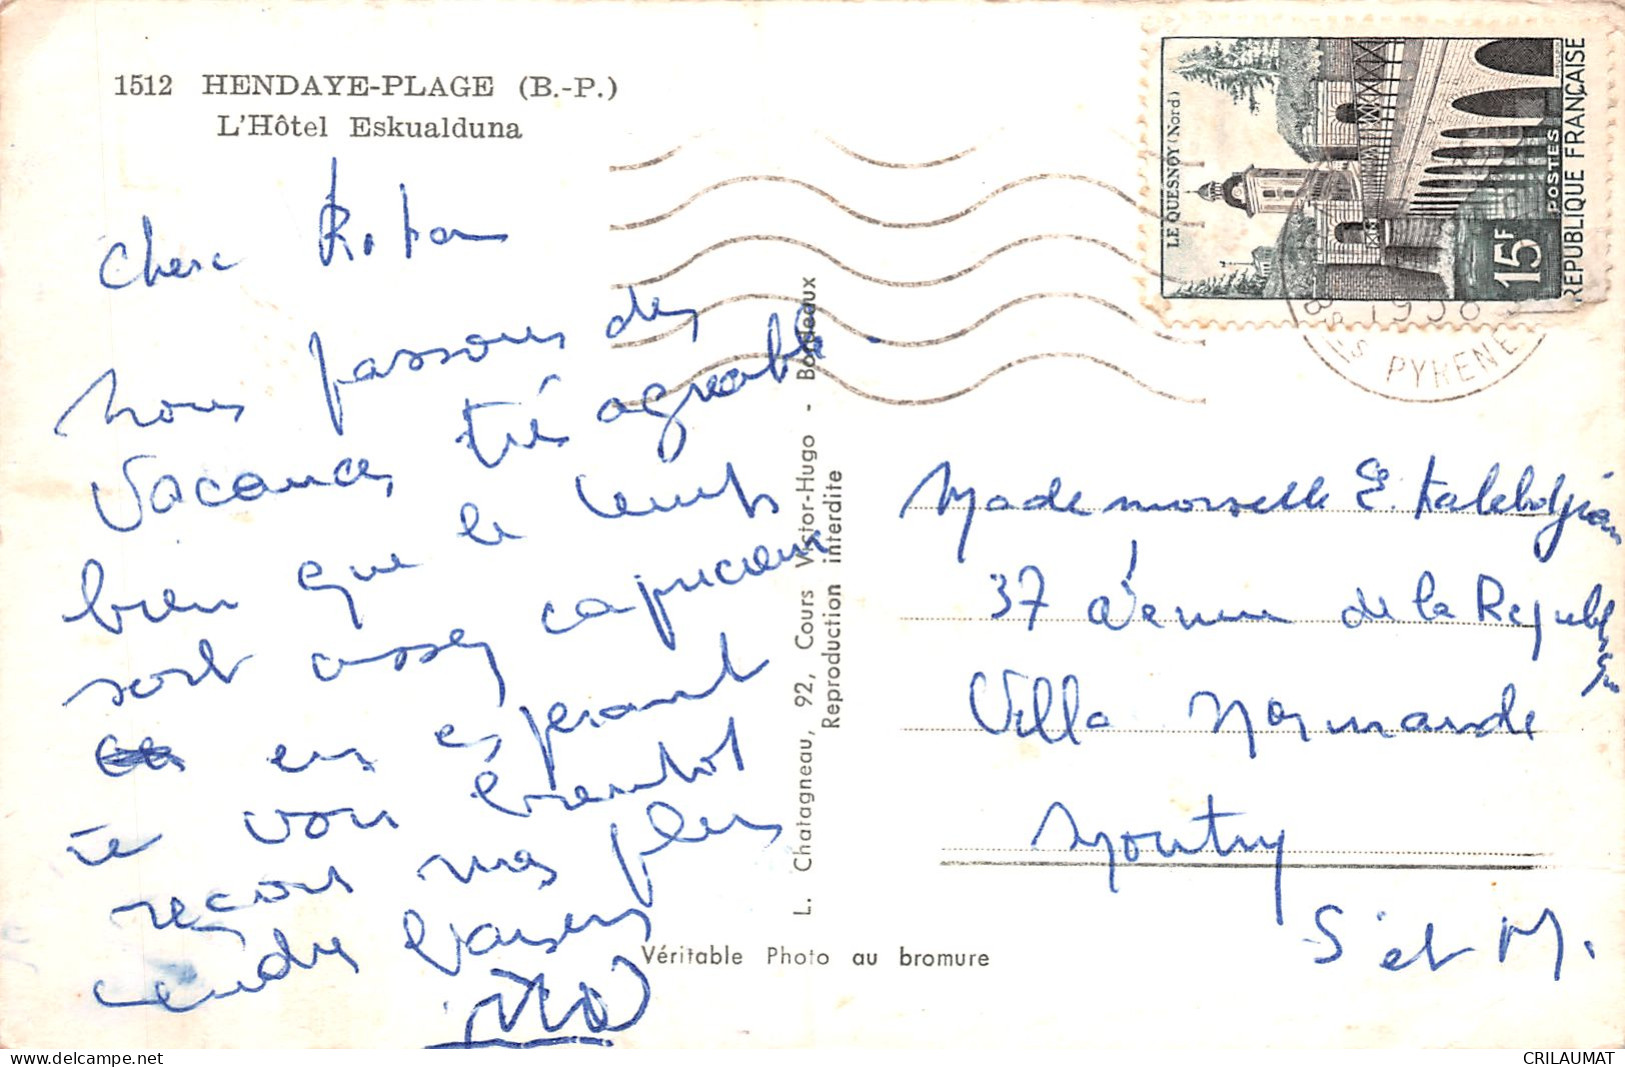 1512 HENDAYE-PLAGE (B.-P.)
L'Hôtel Eskualduna
Chère
nous passons des
vacances très agréable
bien que le temps
soit assez capricieux
en espérant
te voir bientôt
reçois mes plus
tendre baisers
L. Chatagneau, 92, Cours Victor-Hugo - Bordeaux
Reproduction interdite
Véritable Photo au bromure
LE QUESNOY (Nord)
15F
POSTES
REPUBLIQUE FRANÇAISE
BSES PYRENE
Mademoiselle E. Kalebdjian
37 Avenue de la Republi
que
Villa Normande
Moutry
S et M.
CRILAUMAT